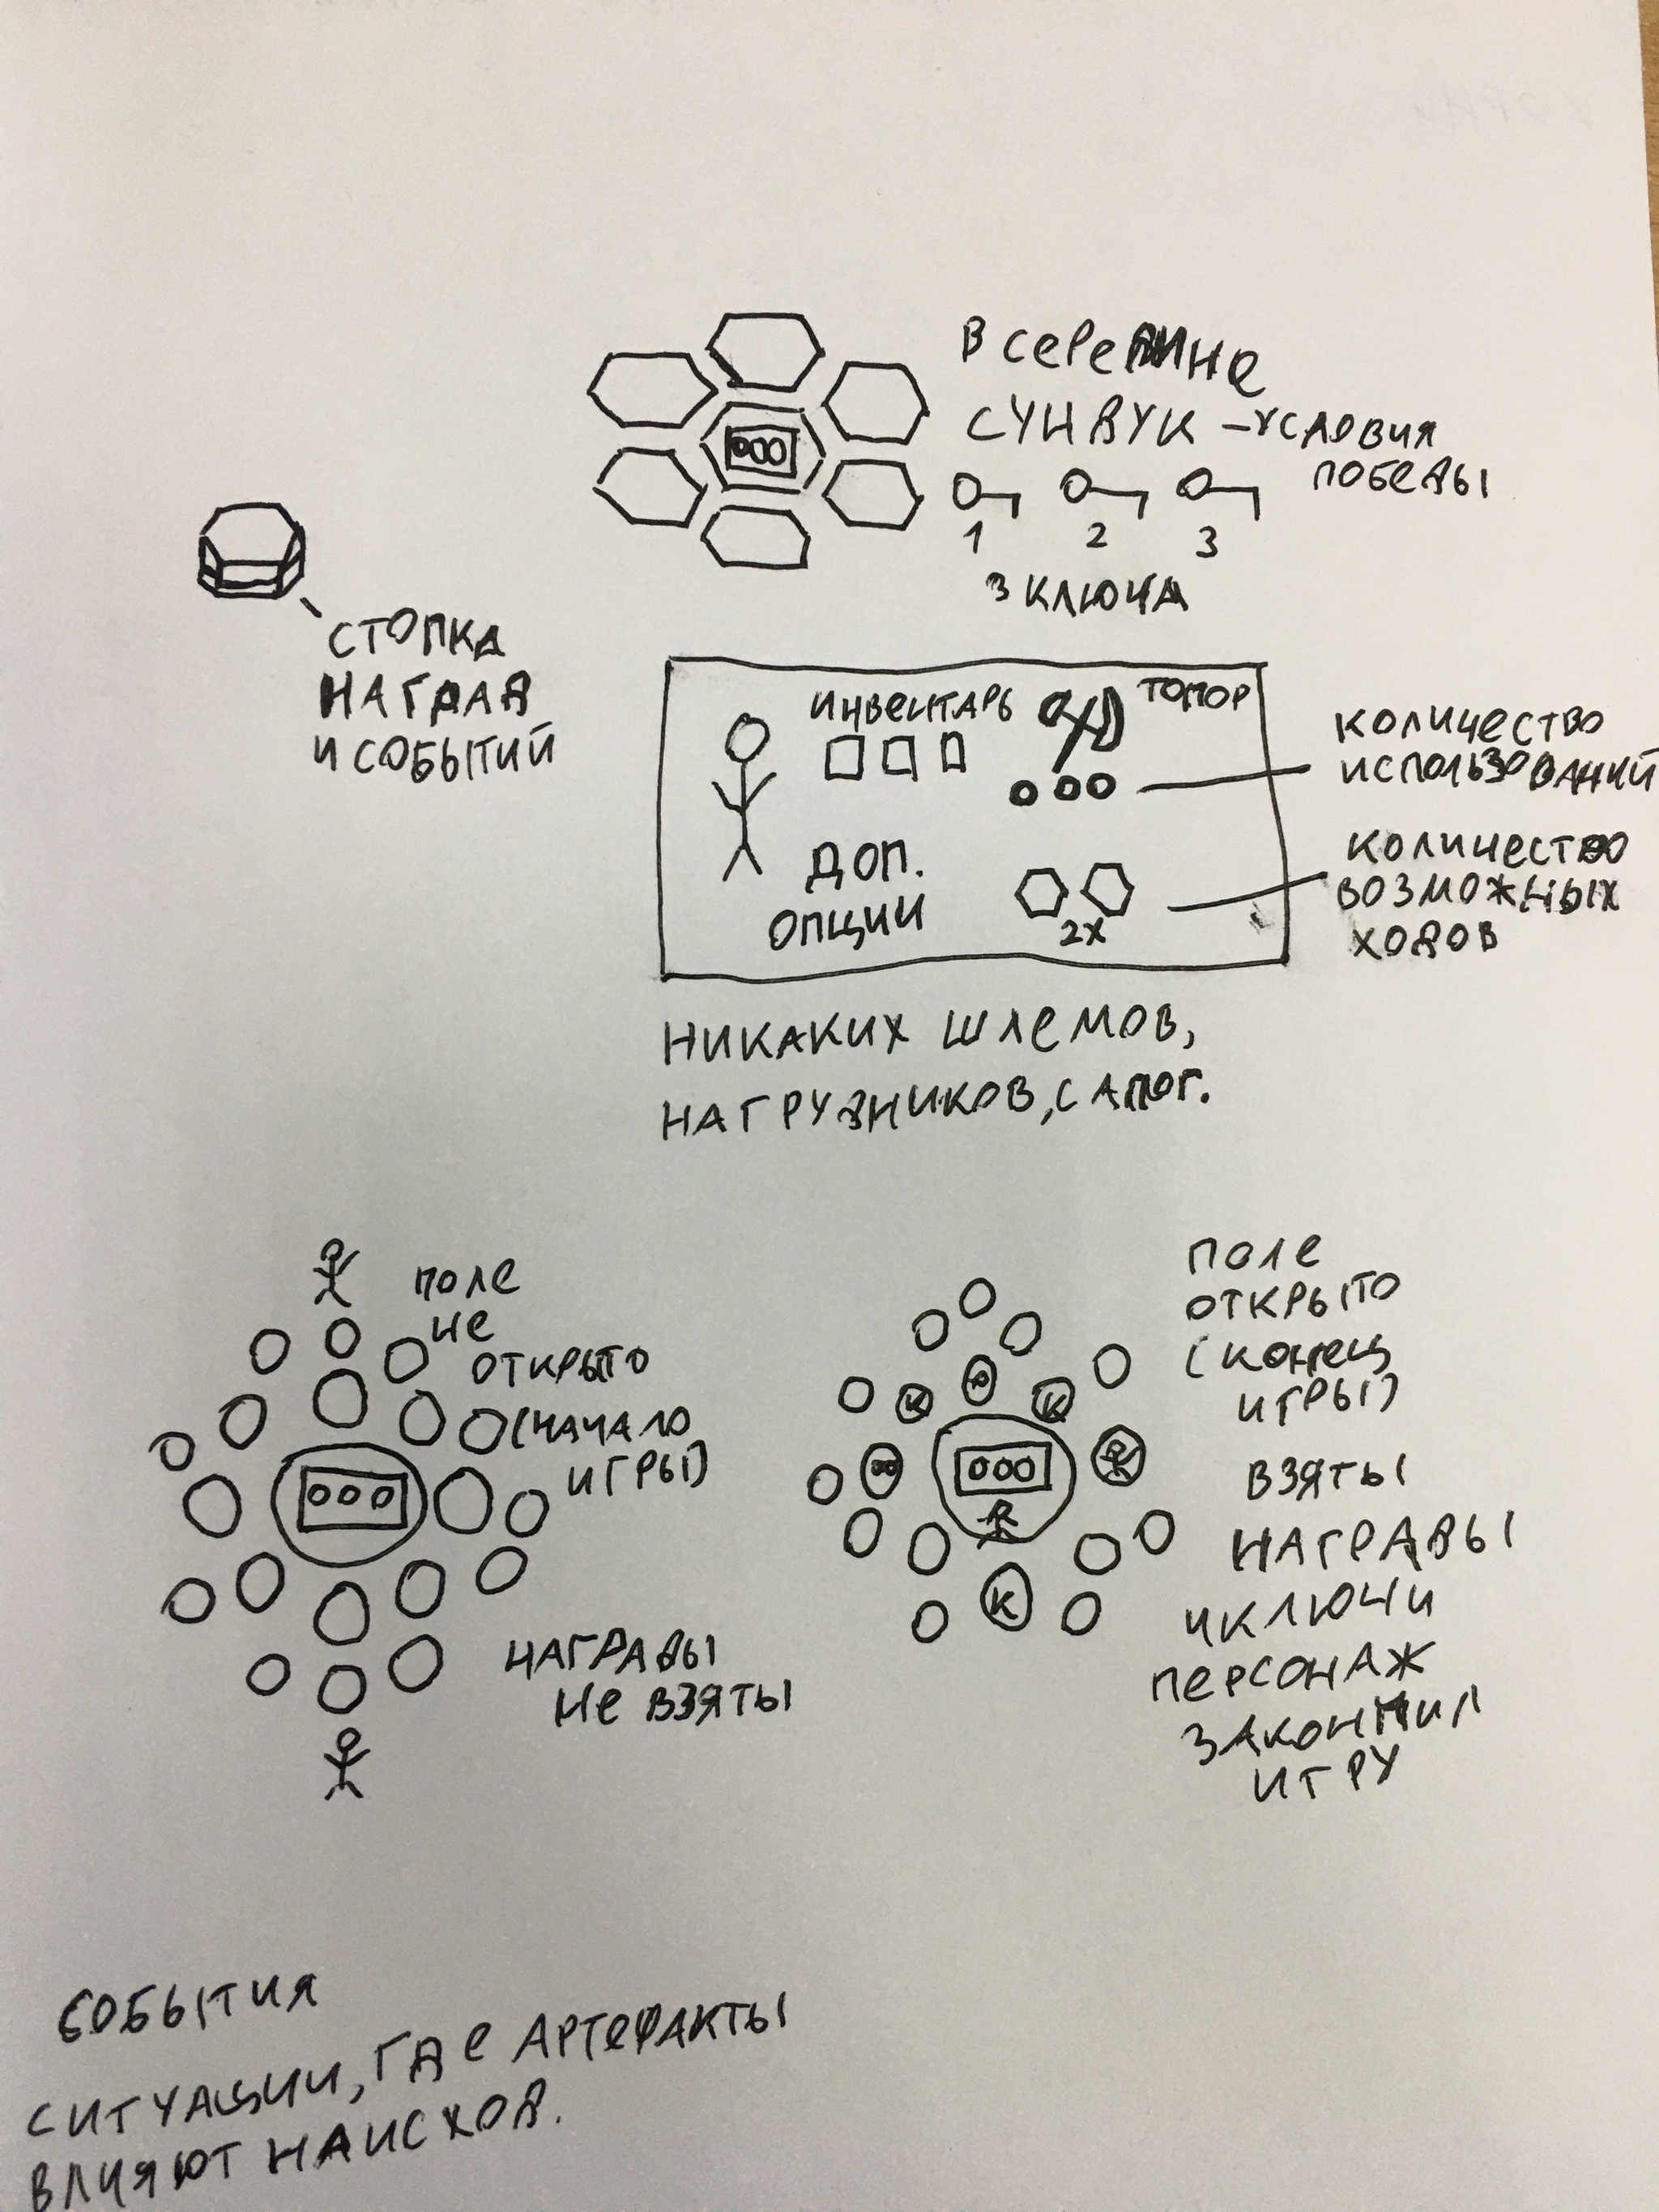 В СЕРЕДИНЕ
СУНДУК – УСЛОВИЯ
ПОБЕДЫ
1 2 3
3 КЛЮЧА
СТОПКА
НАГРАД
И СОБЫТИЙ
ИНВЕНТАРЬ ТОПОР
КОЛИЧЕСТВО
ИСПОЛЬЗОВАНИЙ
ДОП.
ОПЦИИ
2X
КОЛИЧЕСТВО
ВОЗМОЖНЫХ
ХОДОВ
НИКАКИХ ШЛЕМОВ,
НАГРУЗНИКОВ, САПОГ.
ПОЛЕ
НЕ
ОТКРЫТО
(НАЧАЛО
ИГРЫ)
НАГРАДЫ
НЕ ВЗЯТЫ
ПОЛЕ
ОТКРЫТО
(КОНЕЦ
ИГРЫ)
К К
К
ВЗЯТЫ
НАГРАДЫ
И КЛЮЧИ
ПЕРСОНАЖ
ЗАКОНЧИЛ
ИГРУ
СОБЫТИЯ
СИТУАЦИИ, ГДЕ АРТЕФАКТЫ
ВЛИЯЮТ НА ИСХОД.